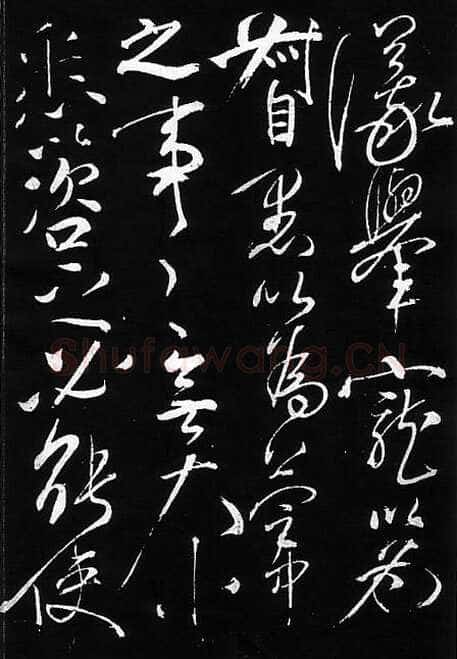 議舉寵以為
督愚以為營中
之事〻無大小
悉以咨之必能使
Shufawang.CN